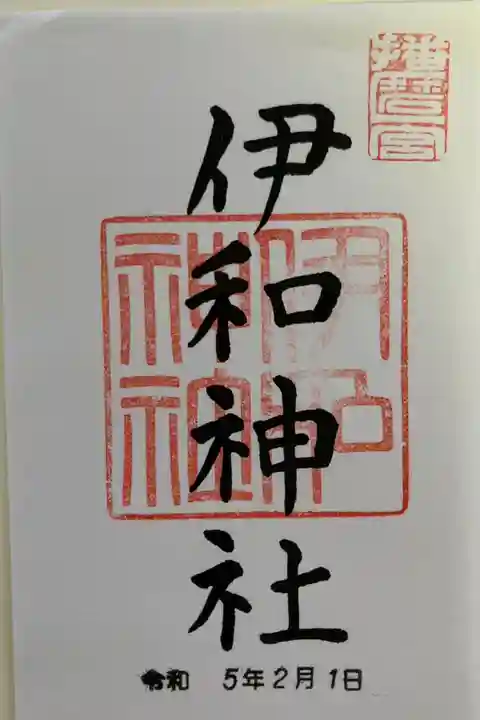 播磨一宮
伊和神社
伊和
神社
令和 5年2月1日